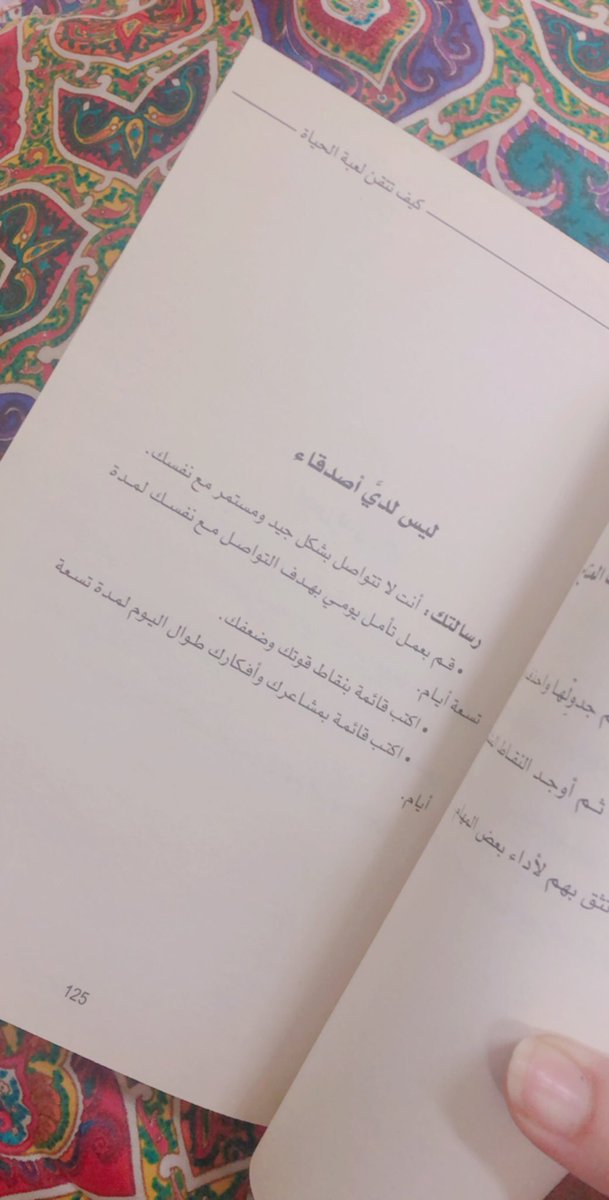 كيف تتقن لعبة الحياة
ليس لديَّ أصدقاء
رسالتك: أنت لا تتواصل بشكل جيد ومستمر مع نفسك.
• قم بعمل تأمل يومي بهدف التواصل مع نفسك لمدة
تسعة أيام.
• اكتب قائمة بنقاط قوتك وضعفك.
• اكتب قائمة بمشاعرك وأفكارك طوال اليوم لمدة تسعة
أيام.
125
م جدولها
ثم أوجد النقاط
تثق بهم لأداء بعض المهام